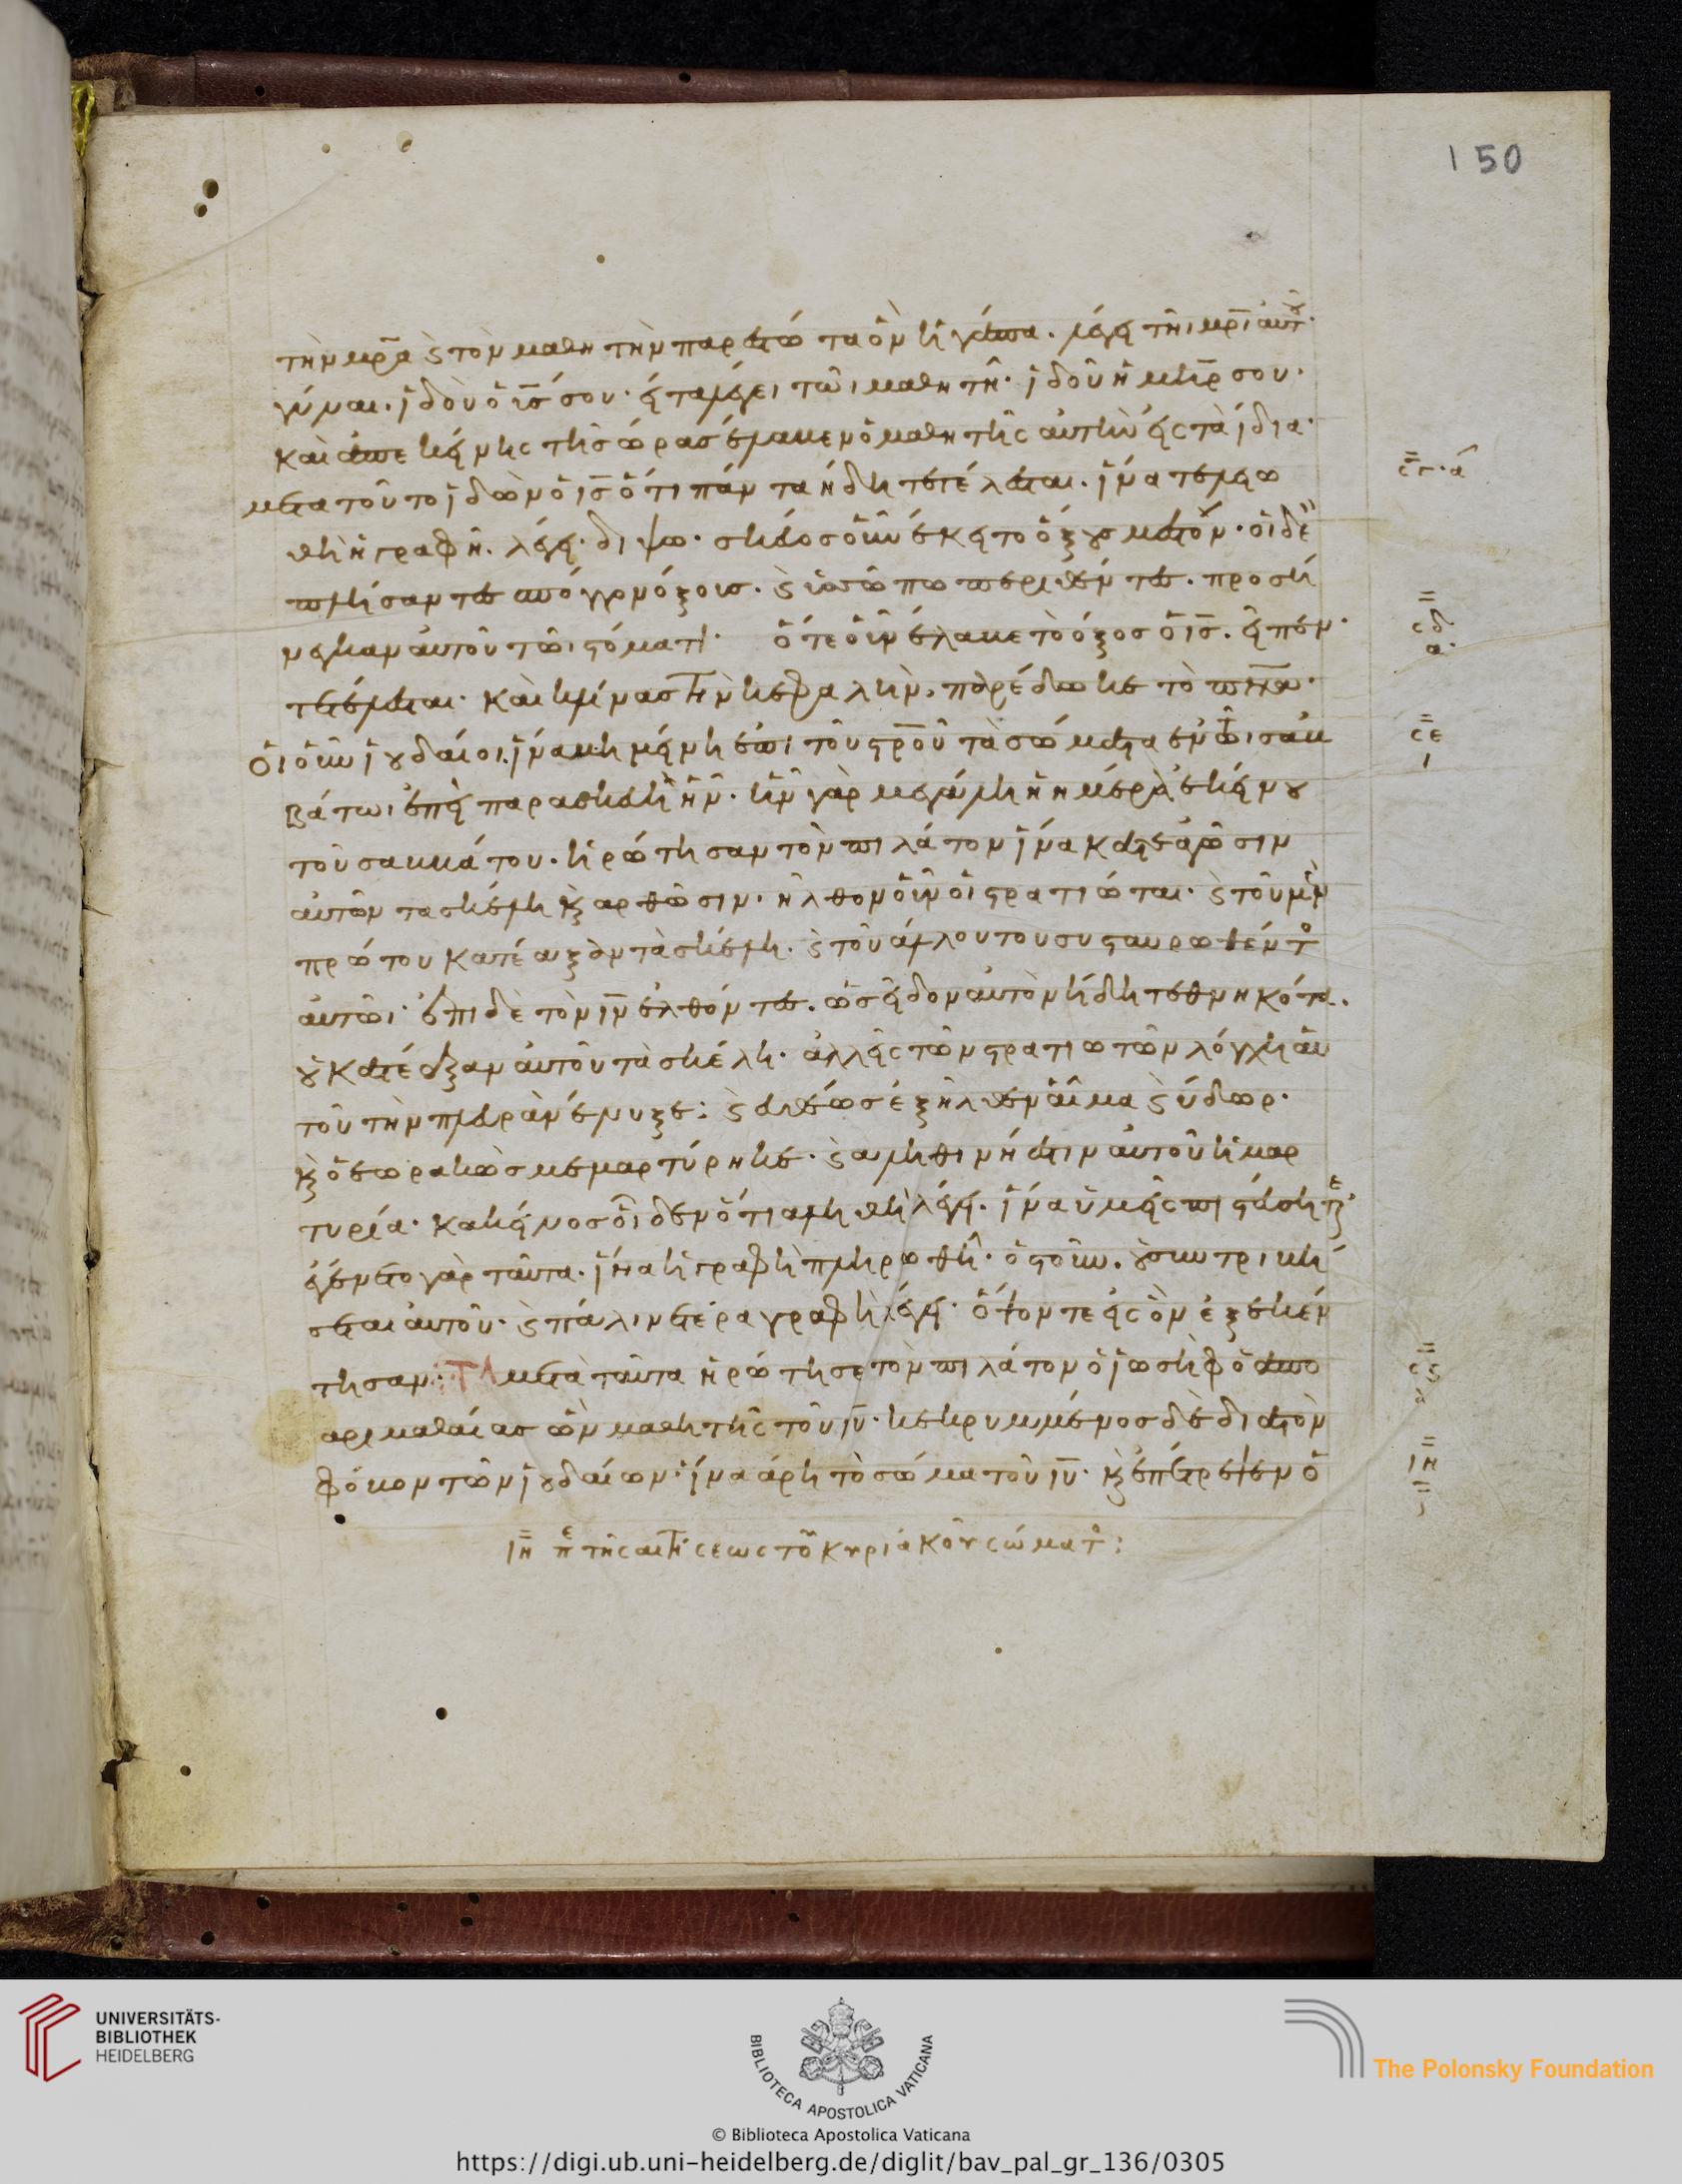 150
τὴν μρ̅α ϛ τὸν μαθητὴν παρεστῶτα ὃν ἠγάπα. λέγει τῆι μρ̅ι αὐτοῦ·
γύναι. ἰδοὺ ὁ υἱό̅ς σου· εἶτα λέγει τῶι μαθητῆ· ἰδοῦ ἡ μή̅ρ σου·
καὶ ἀπ ἐκείνης τῆς ὥρας ἔλαβεν ὁ μαθητῆς αὐτὴν εἰς τὰ ἴδια·
μετα τοῦτο ἰδὼν ὁ ις̅ ὅτι πάντα ἤδη τετέλεσται. ἵνα τελειω
θῆ ἡ γραφή. λέγει· διψῶ· σκεῦος οὖν ἔκειτο ὄξους μεστόν· οἱ δὲ
πλήσαντες σπόγγον ὄξους. ϛ ὑσώπω περιθέντες. προσή
νεγκαν αὐτοῦ τῶι στόματι· ὅτε οὖν ἔλαβε τὸ ὄξος ὁ ις̅. εἶπεν·
τετέλεσται· καὶ κλίνας τὴν κεφαλὴν. παρέδωκε τὸ πνα̅·
οἱ οὖν ἰουδαίοι. ἵνα μὴ μείνη ἐπι τοῦ στρ̅οῦ τὰ σώματα ἐν τῶι σαβ
βάτωι ἐπεὶ παρασκευὴ ἦν· ἦν γὰρ μεγάλη ἡ ἡμέρα ἐκείνου
τοῦ σαββάτου. ἠρώτησαν τὸν πιλάτον ἵνα κατεαγῶσιν
αὐτῶν τα σκέλη κ̀ αρθῶσιν. ἦλθον οὖν οἱ στρατιῶται· ϛ τοῦ μὲν
πρώτου κατέαξαν τὰ σκέλη. ϛ τοῦ ἄλλου του συσταυρωθέντος
αὐτῶι· ἐπι δὲ τὸν ιν̅ ἐλθόντες. ὡς εἶδον αὐτὸν ἤδη τεθνηκότα.
οὐ κατέαξαν αὐτοῦ τὰ σκέλη. ἀλλ εἷς τῶν στρατιωτῶν λόγχη αὐ
τοῦ τὴν πλευρὰν ἔνυξε: ϛ εὐθέως ἐξῆλθεν αἷμα ϛ ὕδωρ.
κ̀ ὁ ἑωρακὼς μεμαρτύρηκε· ϛ αληθινή ἐστιν αὐτοῦ ἡ μαρ
τυρία· κακεῖνος οἶδεν ὅτι αληθῆ λέγει. ἵνα ὑμεῖς πιστεύσητε·
ἐγένετο γὰρ ταῦτα. ἵνα ἡ γραφὴ πληρωθῆ· ὀστοῦν. οὐ συντριβή
σεται αὐτοῦ· ϛ πάλιν ετέρα γραφὴ λέγει· ὄψονται εἰς ὃν ἐξεκέν
τησαν: ΤΛ μετὰ ταῦτα ἠρώτησε τὸν πιλάτον ὁ ἰωσὴφ ὁ ἀπο
αριμαθαίας ὢν μαθητῆς τοῦ ιυ̅· κεκρυμμένος δὲ διὰ τὸν
φόβον τῶν ἰουδαίων· ἵνα ἄρη τὸ σῶμα τοῦ ιυ̅· κ̀ ἐπέτρεψεν ὁ
ιη̅ πε τῆς αἰτήσεως τοῦ κυριακοῦ σώματος:
σγ· α
σδ
α·
σε
ι
σϛ
α
ιη
UNIVERSITÄTS-
BIBLIOTHEK
HEIDELBERG
BIBLIOTECA APOSTOLICA VATICANA
The Polonsky Foundation
© Biblioteca Apostolica Vaticana
https://digi.ub.uni-heidelberg.de/diglit/bav_pal_gr_136/0305